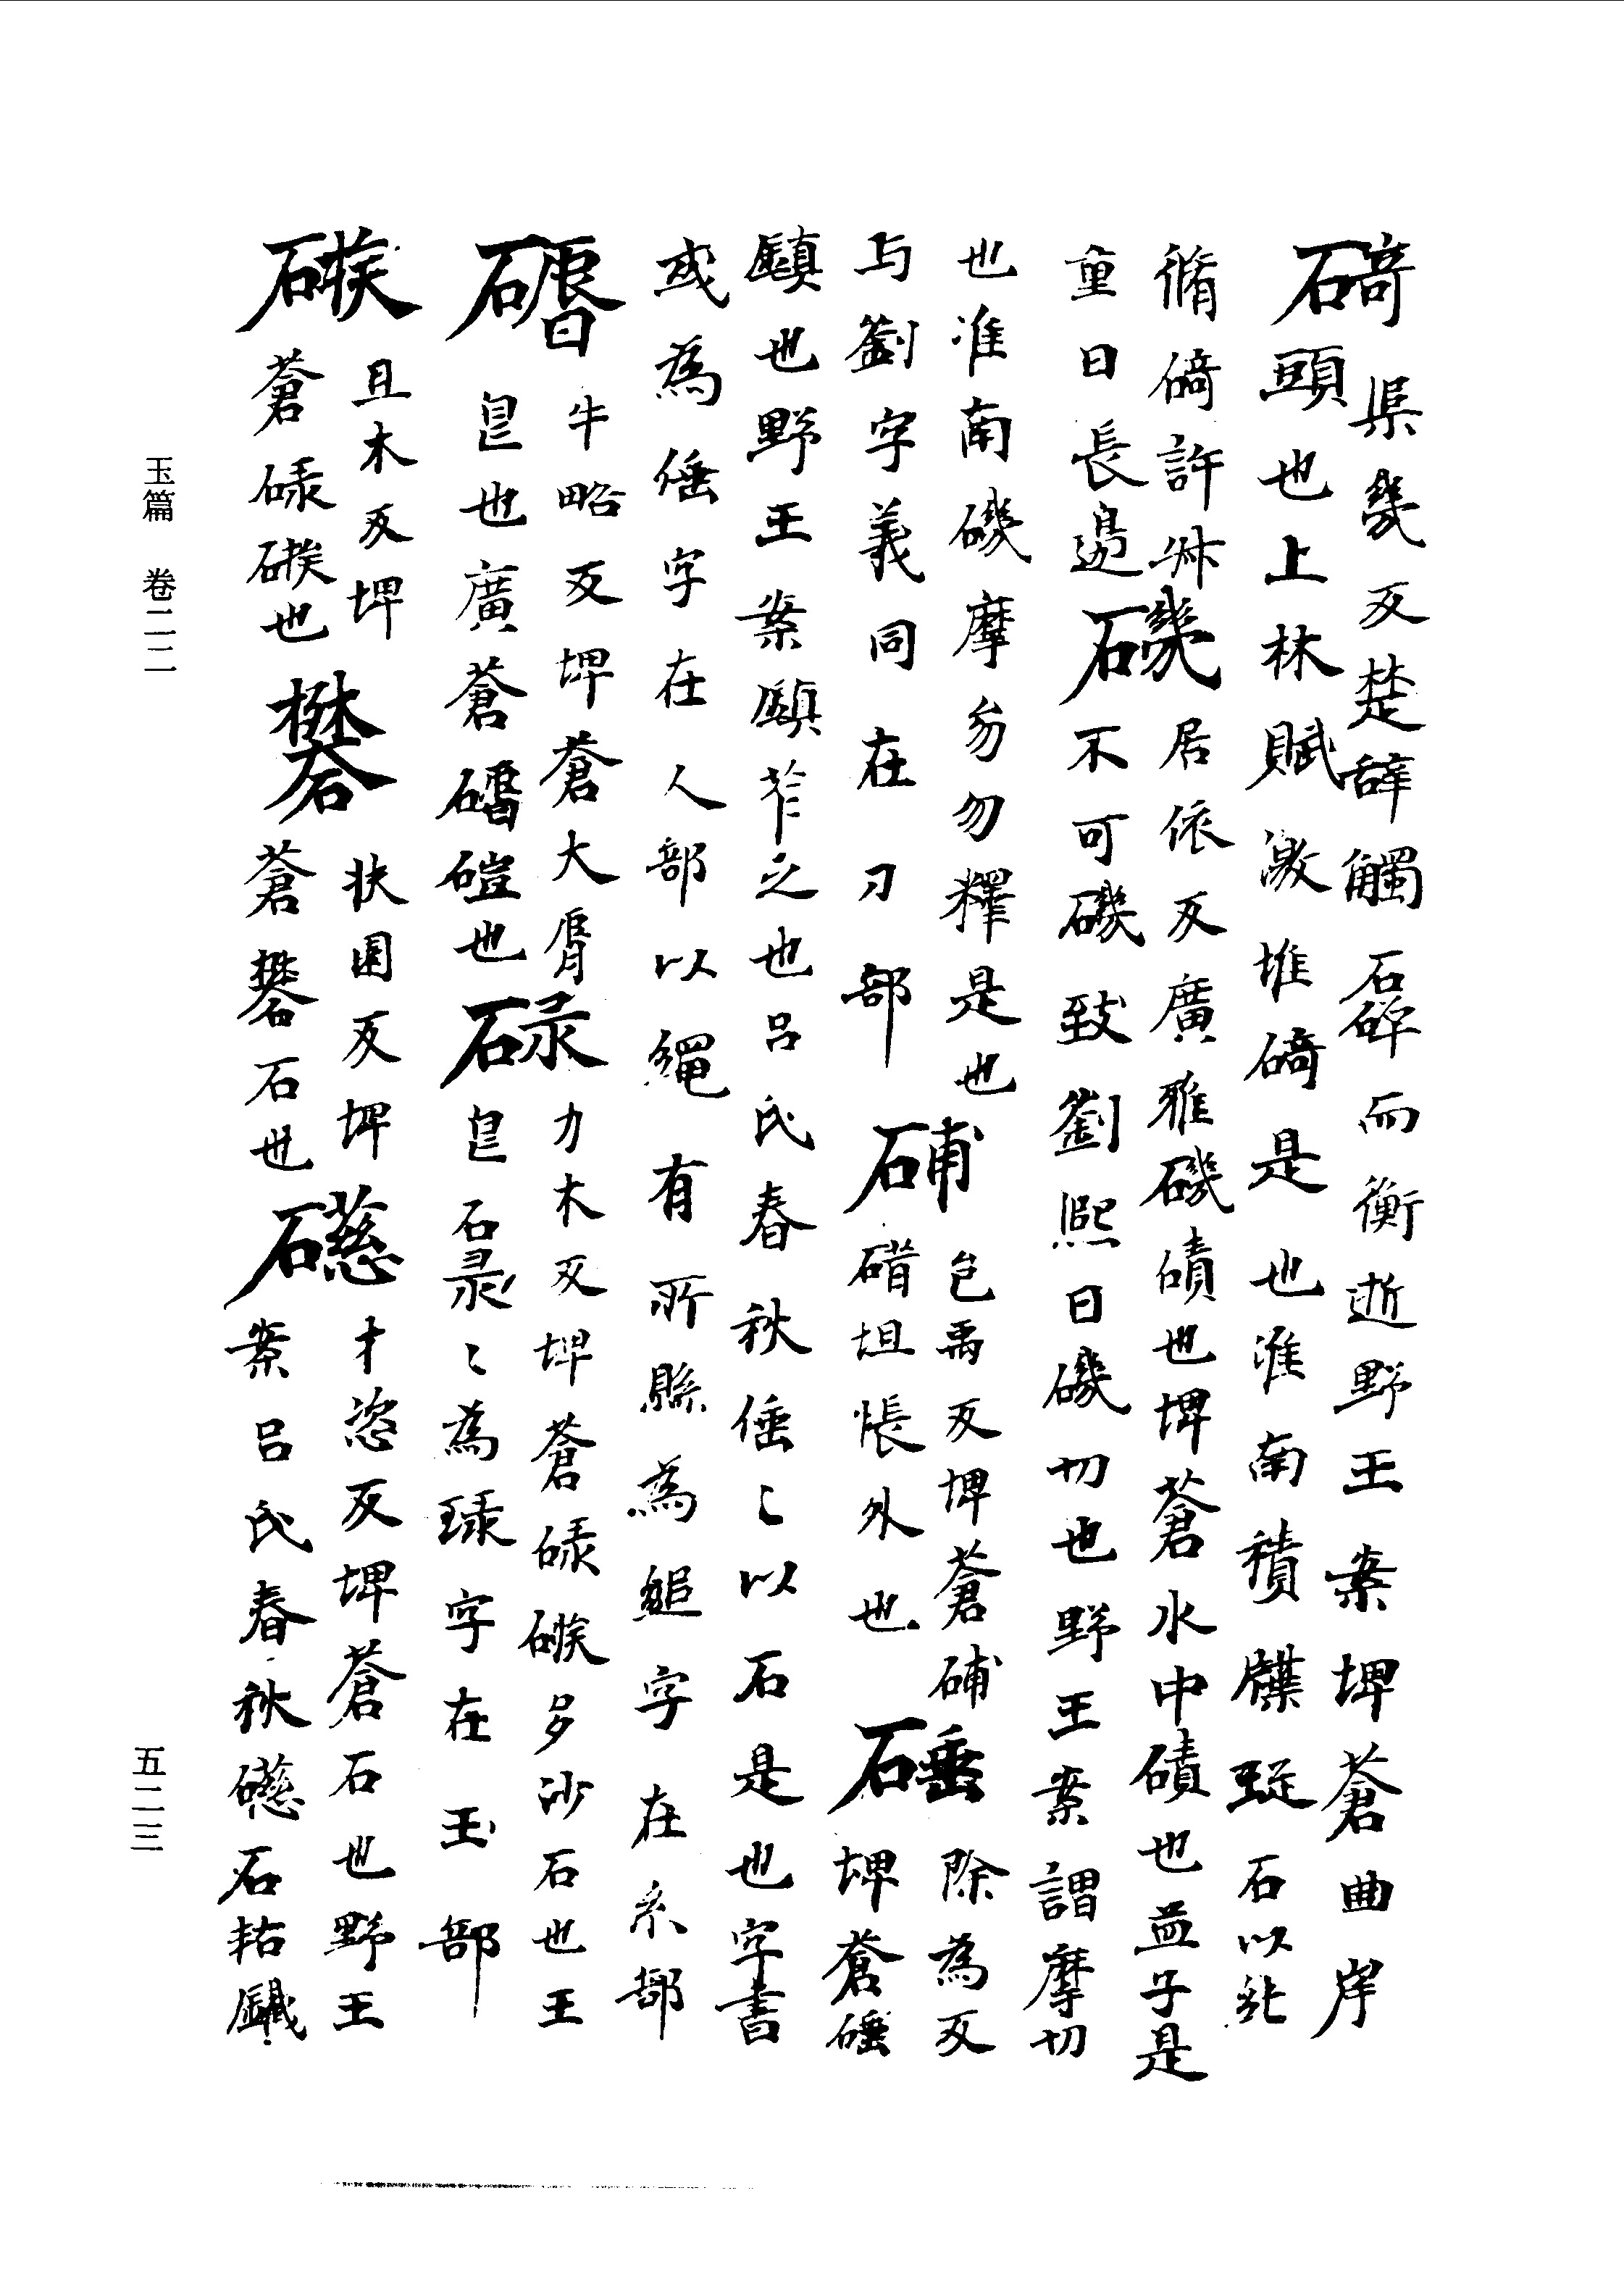 碕渠幾反楚辞觸石碕而衡逝野王案埤蒼曲岸
頭也上林賦激堆碕是也淮南積牒琁石以純
脩碕許叔
重曰長邊
磯居依反廣雅磯磧也埤蒼水中磧也孟子是
不可磯致劉熙曰磯切也野王案謂摩切
也淮南磯摩勿勿釋是也
与劉字義同在刀部
䃽邑禹反埤蒼䃽
碏坦悵外也
硾除為反
埤蒼硾
鎮也野王案鎮笮之也吕氏春秋倕〻以石是也字書
或為倕字在人部以繩有所縣為縋字在糸部
䃬牛略反埤蒼大脣
皃也廣蒼䃬磑也
碌力木反埤蒼碌䃚多沙石也王
皃石录〻為琭字在玉部
䃚且木反埤
蒼碌䃚也
礬扶園反埤
蒼礬石也
礠才恣反埤蒼石也野王
案吕氏春秋礠石拈鐵
玉篇 卷二二
五二二三